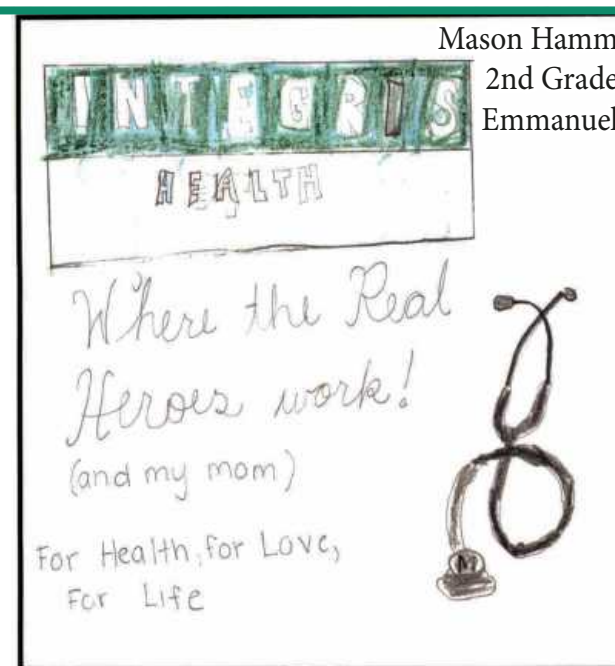 Mason Hamm
2nd Grade
Emmanuel
INTAGRIS
HEALTH
Where the Real
Heroes work!
(and my mom)
For Health, for Love,
For Life
M